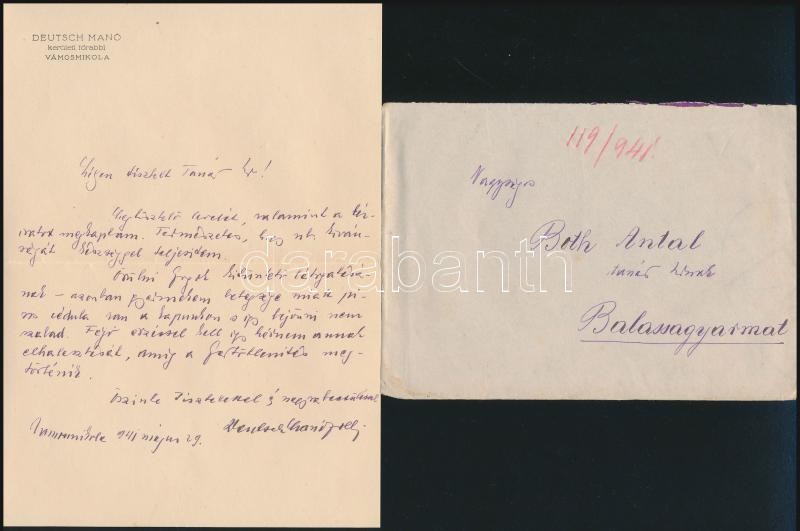 DEUTSCH MANÓ
kerületi főrabbi
VÁMOSMIKOLA
Igen tisztelt Tanár Ur!
Megtisztelő levelét, valamint a kér-
iratot megkaptam. Természetes, hogy kíván-
ságát készséggel teljesítem.
Örülni fogok látogatásá-
nak – azonban gyermekem betegsége miatt pi-
ros cédula van a kapunkon s így bejönni nem
szabad. Fájó szívvel kell így kérnem annak
elhalasztását, amíg a fertőtlenítés meg-
történik.
Őszinte tisztelettel és nagyrabecsüléssel
Vámosmikola 941 május 29.
Deutsch Manó
119/941.
Nagyságos
Both Antal
tanár úrnak
Balassagyarmat
darabanth